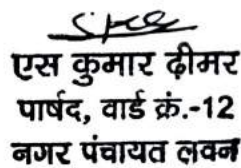 एस कुमार ढ़ीमर
पार्षद, वार्ड क्रं.-12
नगर पंचायत लवन